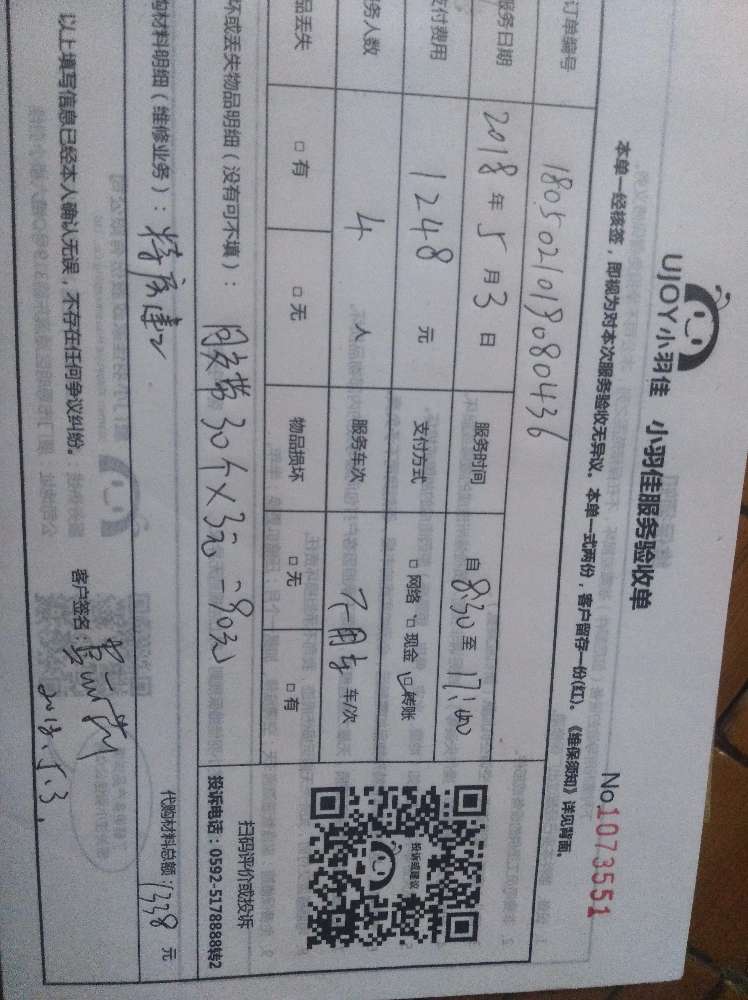 UJOY小羽佳 小羽佳服务验收单
No.1073551
本单一经核签，即视为对本次服务验收无异议。本单一式两份，客户留存一份(红)。《维保须知》详见背面。
订单编号 180502101908043​6
服务日期 2018年5月3日 服务时间 自8:30至17:00
支付费用 1248元 支付方式 □网络 □现金 □转账
务人数 4人 服务车次 不用车 车/次
品丢失 □有 □无 物品损坏 □无 □有
坏或丢失物品明细（没有可不填）： 30个×3元=90元
扫码评价或投诉
投诉电话：0592-5178888转2
投诉或建议
购材料明细（维修业务）：
代购材料总额：1338元
以上填写信息已经本人确认无误，不存在任何争议纠纷。
客户签名：
2018.5.3.